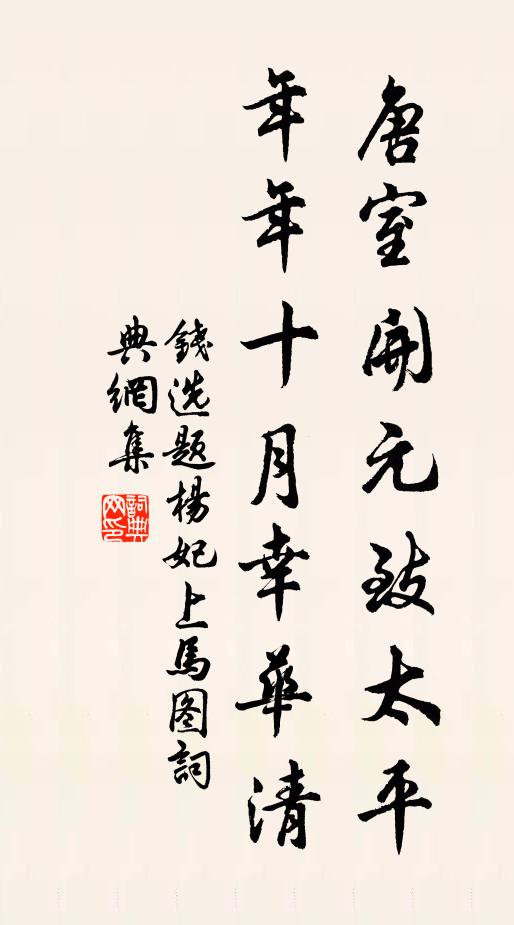 唐室開元致太平
年年十月幸華清
錢选题楊妃上馬图詞
典網集
詞典網印